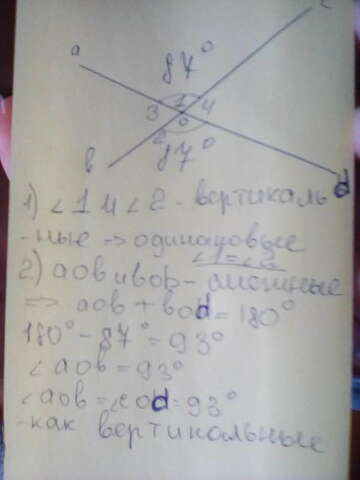 с
а
87°
3 1 4
2 о
в
87°
d
1) ∠1 и ∠2 - вертикаль
-ные => одинаковые
∠1=∠2
2) аов и вод - смежные
=> аов + воd = 180°
180° - 87° = 93°
∠аов = 93°
∠аов = ∠соd = 93°
-как вертикальные